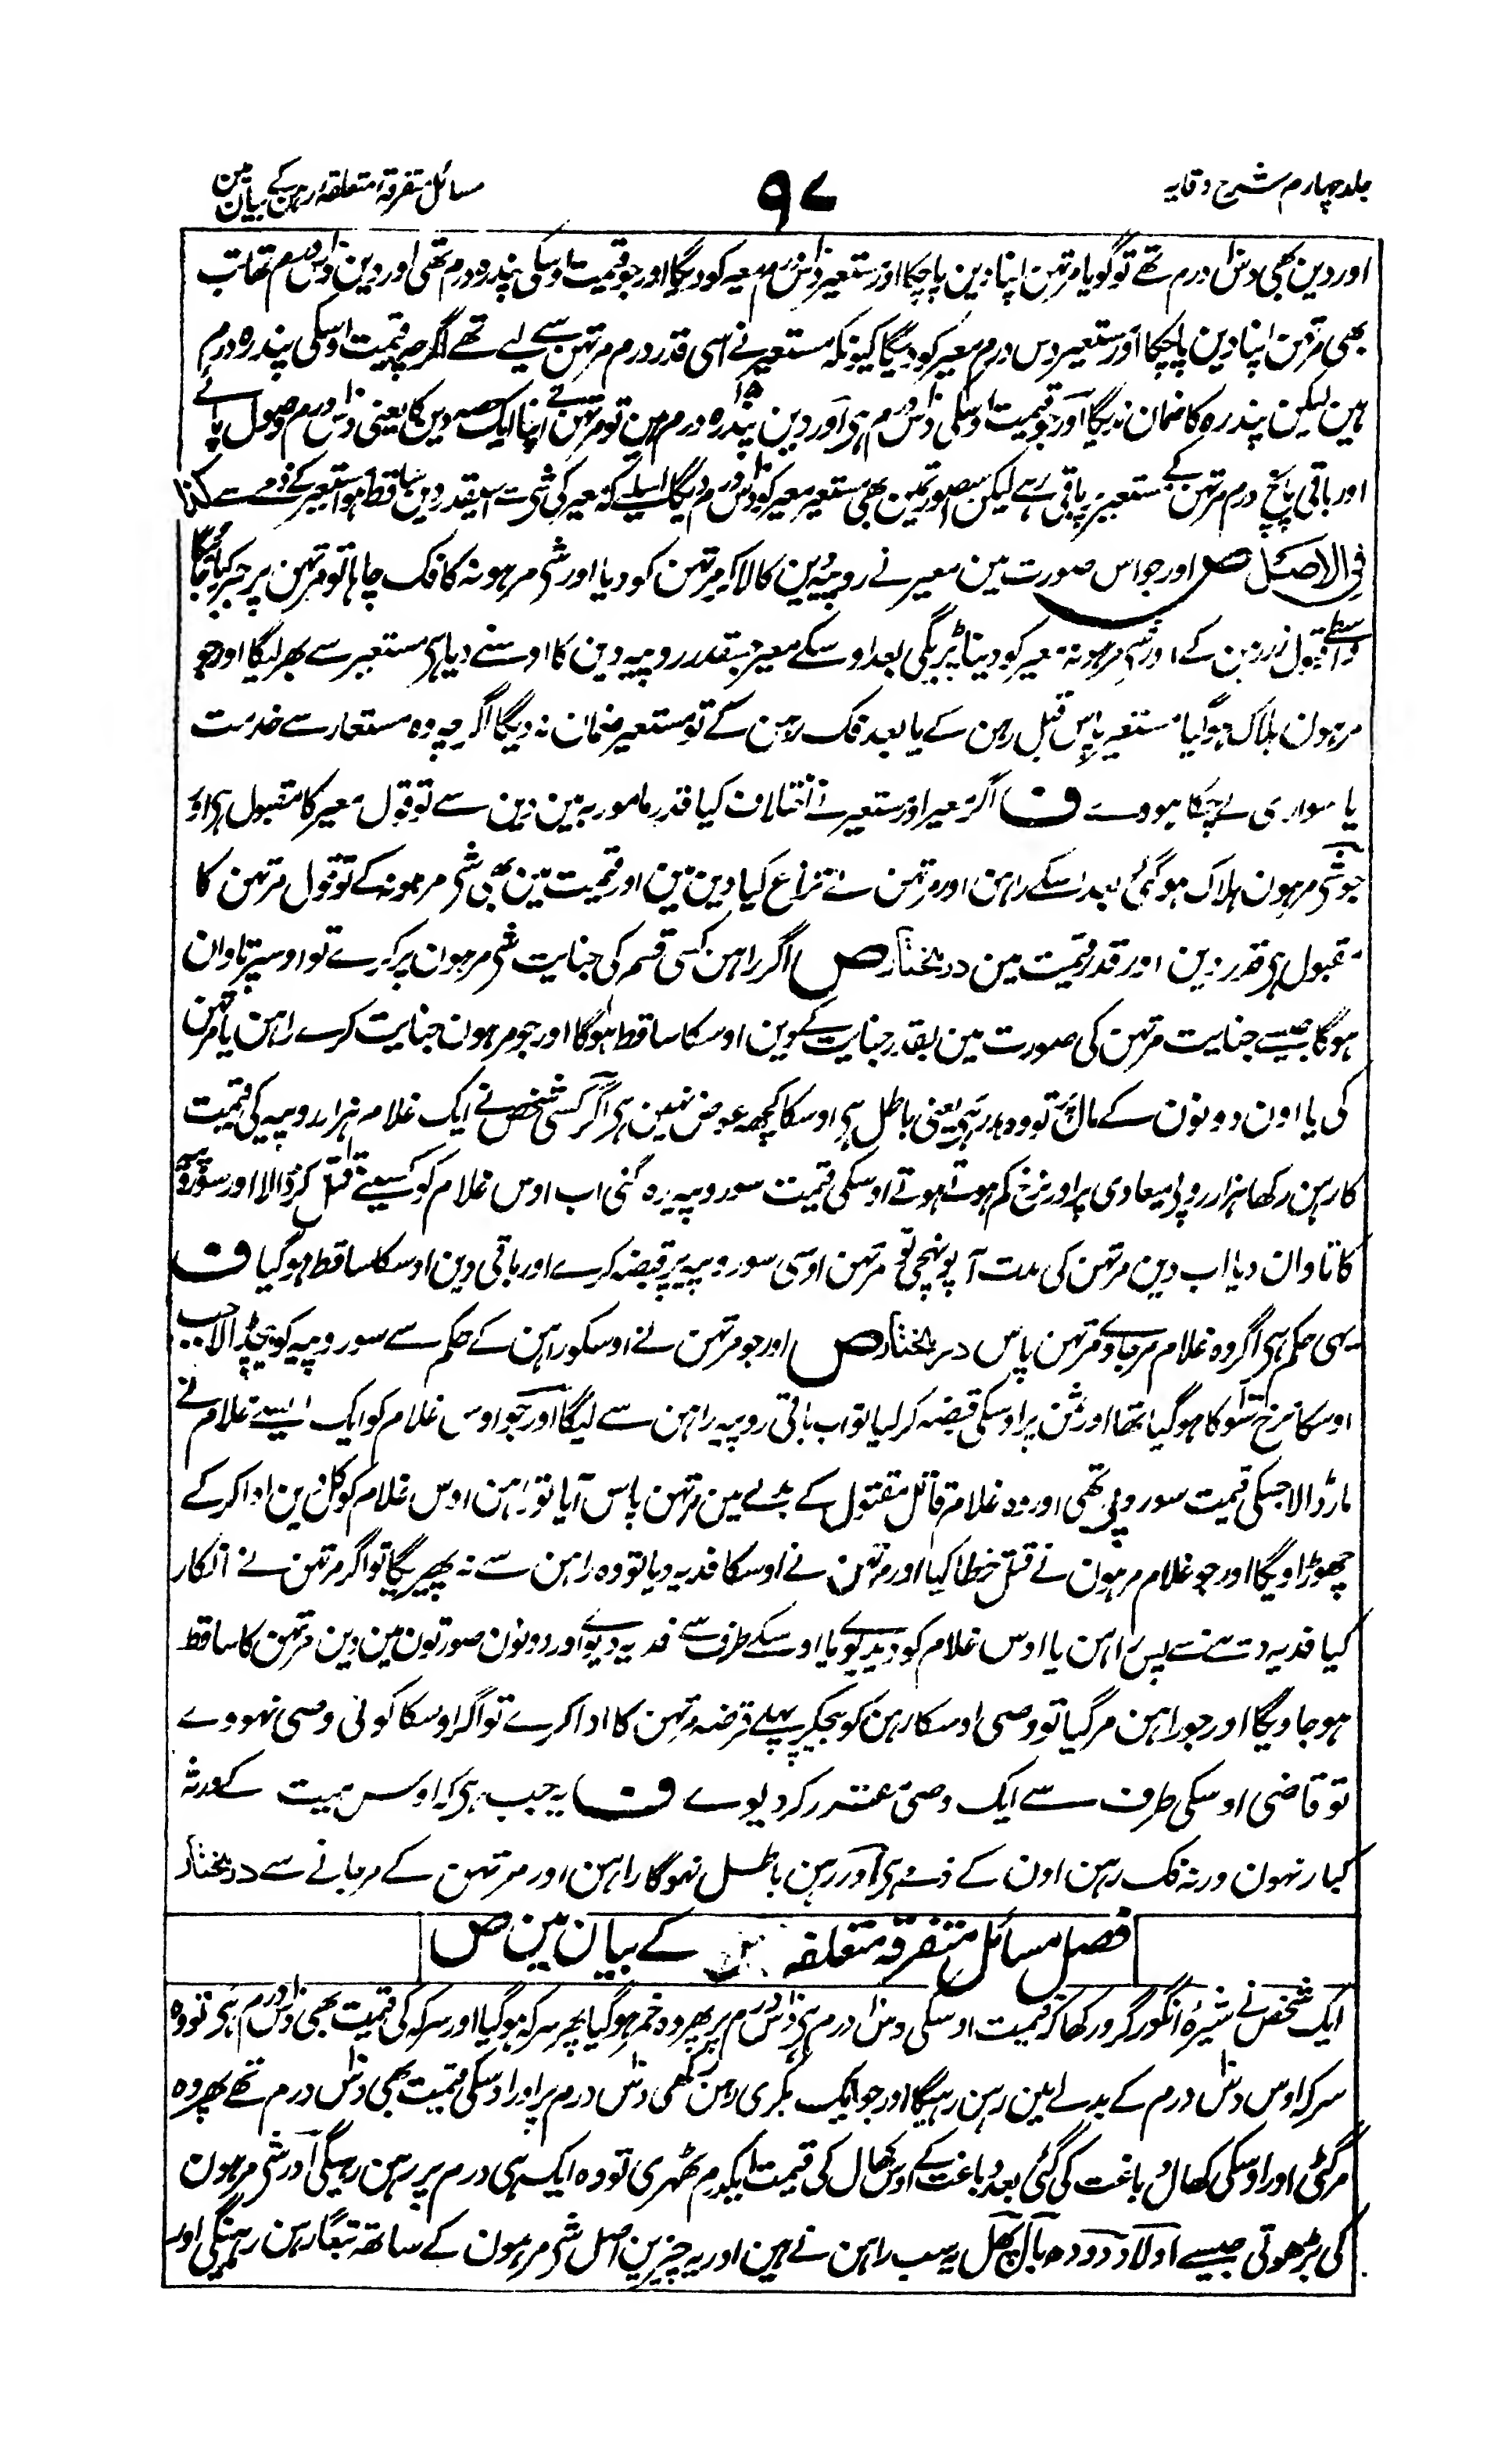 جلد چہارم شرح وقایہ
۹۷
مسائل متفرقہ متعلقہ رہن کے بیان مین
اور دین بھی دس درم تھے تو گویا مرتہن اپنا دین پا چکا اور مستعیر دس درم معیر کو دیگا اور جو قیمت اوسکی پندرہ درم تھی اور دین دس درم تھا تب
بھی مرتہن اپنا دین پا چکا اور مستعیر دس درم معیر کو دیگا کیونکہ مستعیر نے اسی قدر درم مرتہن سے لیے تھے اگرچہ قیمت اوسکی پندرہ درم
ہین لیکن پندرہ کا ضمان ندیگا اور جو قیمت اوسکی دس درم ہی اور دین پندرہ درم ہین تو مرتہن نے اپنا ایک حصہ دین کا یعنی دس درم وصول پائے
اور باقی پانچ درم مرتہن کے مستعیر پر باقی رہے لیکن اسصورتمین بھی مستعیر معیر کو دس درم دیگا اسلیے کہ معیر کی شی سے اسیقدر دین ساقط ہوا مستعیر کے ذمے سے کذا
فی الاصل ص اور جو اس صورت مین معیر نے روپیہ دین کا لا کر مرتہن کو دیا اور شی مرہونہ کا فک چاہا تو مرتہن پر جبر کیا جائیگا
واسطے قبول زر دین کے اور شی مرہونہ معیر کو دینا پڑیگی بعد اوسکے معیر جسقدر روپیہ دین کا اوسنے دیا ہی مستعیر سے بھر لیگا اور جو
مرہون ہلاک ہوگیا مستعیر پاس قبل رہن کے یا بعد فک رہن کے تو مستعیر ضمان نہ دیگا اگرچہ وہ مستعار سے خدمت
یا سواری لے چکا ہووے ف اگر معیر اور مستعیر نے اختلاف کیا قدر مامور بہ مین دین سے تو قول معیر کا مقبول ہی اور
جو شی مرہون ہلاک ہوگئی بعد اسکے راہن اور مرتہن نے نزاع کیا دین مین اور قیمت مین بھی شی مرہونہ کے تو قول مرتہن کا
مقبول ہی قدر دین اور قدر قیمت مین درمختار ص اگر راہن کسی قسم کی جنایت شی مرہون پر کرے تو اوسپر تاوان
ہوگا جیسے جنایت مرتہن کی صورت مین بقدر جنایت کے دین اوسکا ساقط ہوگا اور جو مرہون جنایت کرے راہن یا مرتہن
کی یا اون دونون کے مال پر تو وہ ہدر ہی یعنی باطل ہی اوسکا کچھ عوض نہین ہی اگر کسی شخص نے ایک غلام ہزار روپیہ کی قیمت
کا رہن رکھا ہزار روپئے میعادی پر اور نرخ کم ہوتے ہوتے اوسکی قیمت سو روپیہ رہ گئی اب اوس غلام کو کسینے قتل کر ڈالا اور سو روپیہ
کا تاوان دیا اب دین مرتہن کی مدت آ پہونچی تو مرتہن اوسی سو روپیہ پر قبضہ کرے اور باقی دین اوسکا ساقط ہوگیا ف
یہی حکم ہی اگر وہ غلام مرجاوے مرتہن پاس درمختار ص اور جو مرتہن نے اوسکو راہن کے حکم سے سو روپیہ کو بیچڈالا جب
اوسکا نرخ سو کا ہوگیا تھا اور ثمن پر اوسکی قبضہ کر لیا تو اب باقی روپیہ راہن سے لیگا اور جو اوس غلام کو ایک ایسے غلام نے
مارڈالا جسکی قیمت سو روپئے تھی اور وہ غلام قاتل مقتول کے بدلے مین مرتہن پاس آیا تو راہن اوس غلام کو کل دین ادا کرکے
چھوڑاویگا اور جو غلام مرہون نے قتل خطا کیا اور مرتہن نے اوسکا فدیہ دیا تو وہ راہن سے نہ پھیریگا تو اگر مرتہن نے انکار
کیا فدیہ دینے سے پس راہن یا اوس غلام کو دیدیوے یا اوسکے طرف سے فدیہ دیوے اور دونون صورتون مین دین مرتہن کا ساقط
ہوجاویگا اور جو راہن مرگیا تو وصی اوسکا رہن کو بیچکر پہلے قرضہ مرتہن کا ادا کرے تو اگر اوسکا کوئی وصی نہووے
تو قاضی اوسکی طرف سے ایک وصی مقرر کر دیوے ف یہ جب ہی کہ اوس میت کے ورثہ
کبار نہون ورنہ فک رہن اون کے ذمے ہی اور رہن باطل نہوگا راہن اور مرتہن کے مرجانے سے درمختار
فصل مسائل متفرقہ متعلقہ کے بیان مین ص
ایک شخص نے شیرۂ انگور گرو رکھا کہ قیمت اوسکی دس درم ہی دس درم پر پھر وہ خمر ہوگیا پھر سرکہ ہوگیا اور سرکہ کی قیمت بھی دس درم ہی تو وہ
سرکہ اوس دس درم کے بدلے مین رہن رہیگا اور جو ایک بکری رہن رکھی دس درم پر اور اوسکی قیمت بھی دس درم تھے پھر وہ
مرگئی اور اوسکی کھال دباغت کی گئی بعد دباغت کے اوس کھال کی قیمت ایکدرم ٹھہری تو وہ ایک ہی درم پر رہن رہیگی اور شی مرہون
کی بڑھوتی جیسے اولاد دودھ بال پھل یہ سب راہن نے ہین اور یہ چیزین اصل شی مرہون کے ساتھ تبعًا رہن رہینگی اور